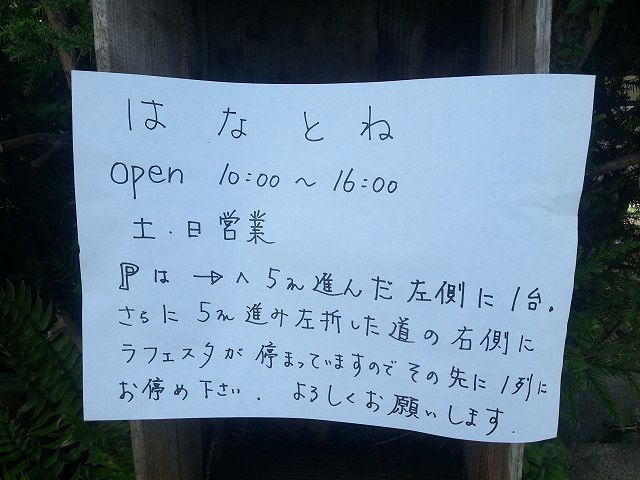 はなとね
open 10:00～16:00
土・日営業
Pは→へ5m進んだ左側に1台。
さらに5m進み左折した道の右側に
ラフェスタが停まっていますのでその先に1列に
お停め下さい. よろしくお願いします.